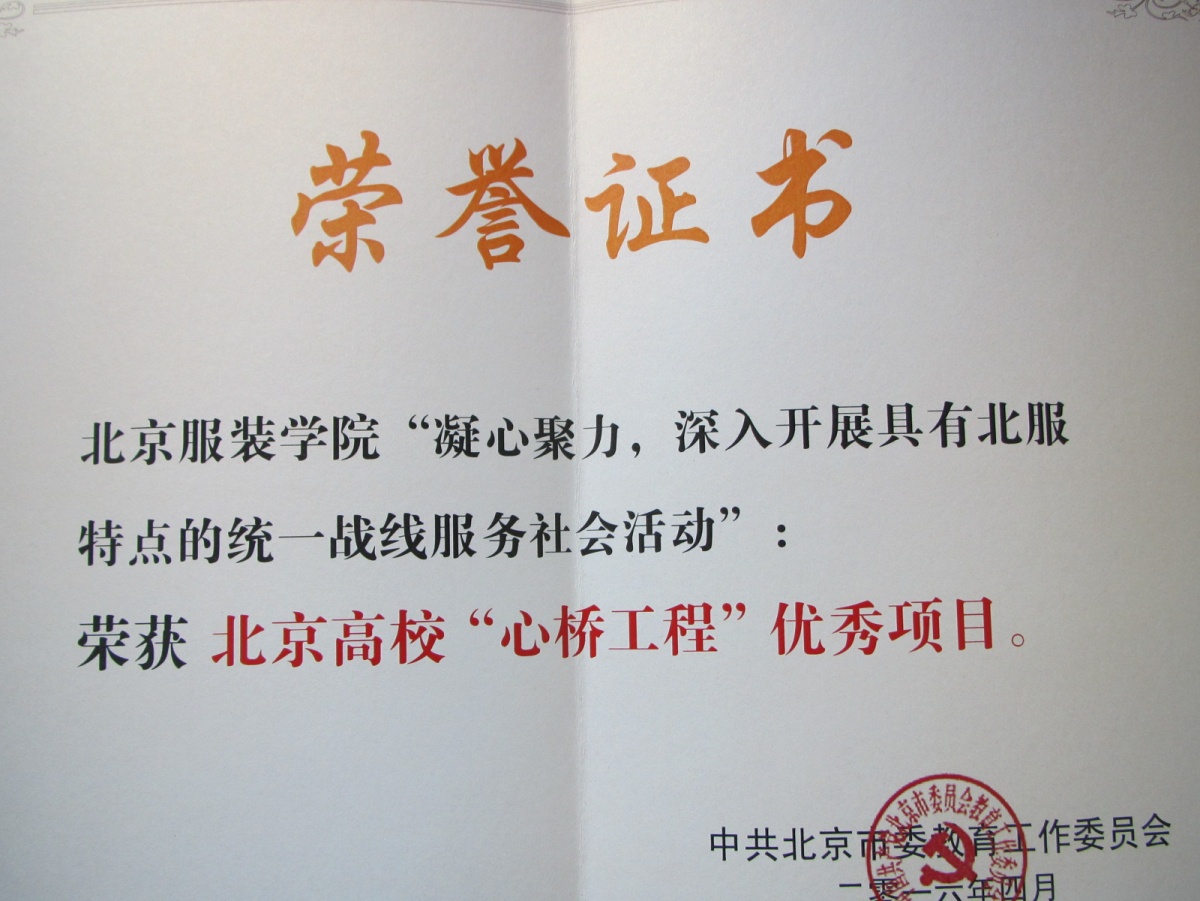 荣誉证书
北京服装学院“凝心聚力，深入开展具有北服
特点的统一战线服务社会活动”：
荣获 北京高校“心桥工程”优秀项目。
中共北京市委教育工作委员会
二零一六年四月